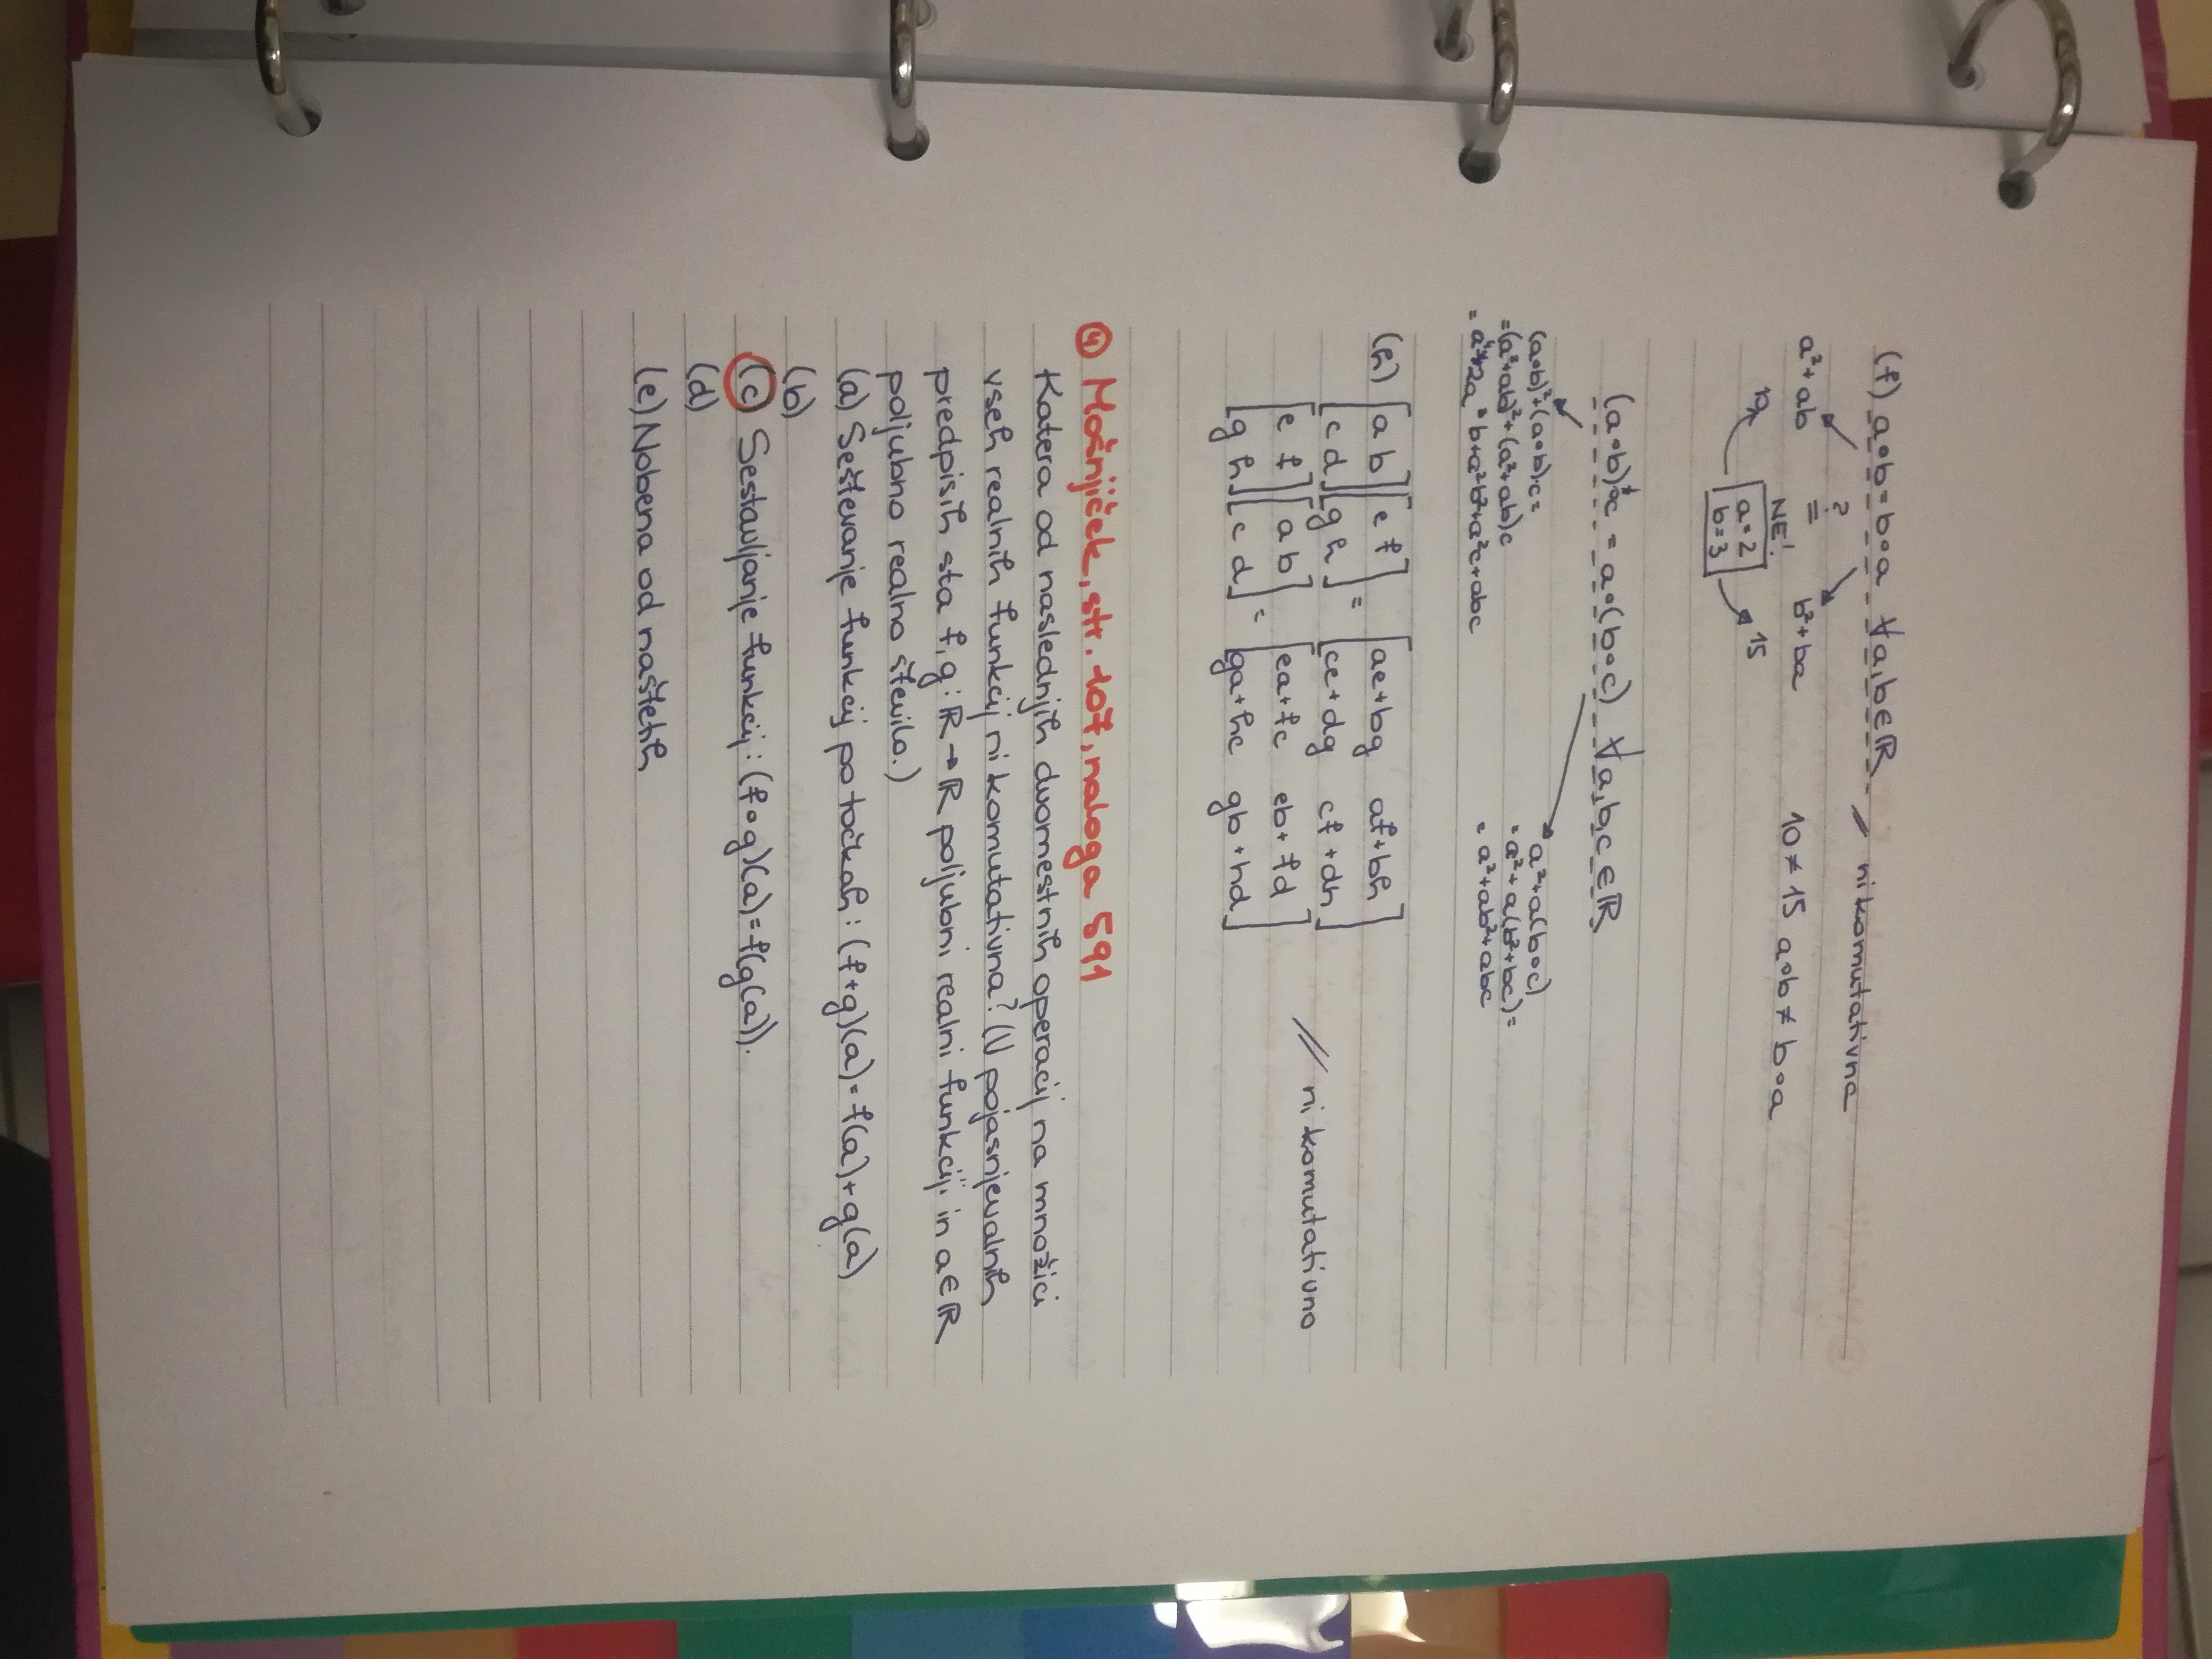 (f) a∘b=b∘a ∀a,b∈ℝ // ni komutativna
a²+ab ?= b²+ba
10≠15 a∘b≠b∘a
NE!
10 a=2 15
b=3
(a∘b)∘c = a∘(b∘c) ∀a,b,c∈ℝ
(a∘b)²+(a∘b)·c= a²+a(b∘c)
=(a²+ab)²+(a²+ab)c =a²+a(b²+bc)=
=a⁴+2a³b+a²b²+a²c+abc = a²+ab²+abc
(h) [a b][e f] = [ae+bg af+bh]
[c d][g h] [ce+dg cf+dh]
// ni komutativno
[e f][a b] = [ea+fc eb+fd]
[g h][c d] [ga+hc gb+hd]
④ Mošnjiček, str. 107, naloga 591
Katera od naslednjih dvomestnih operacij na množici
vseh realnih funkcij ni komutativna? (V pojasnjevalnih
predpisih sta f,g:ℝ→ℝ poljubni realni funkciji in a∈ℝ
poljubno realno število.)
(a) Seštevanje funkcij po točkah: (f+g)(a)=f(a)+g(a)
(b)
(c) Sestavljanje funkcij: (f∘g)(a)=f(g(a)).
(d)
(e) Nobena od naštetih